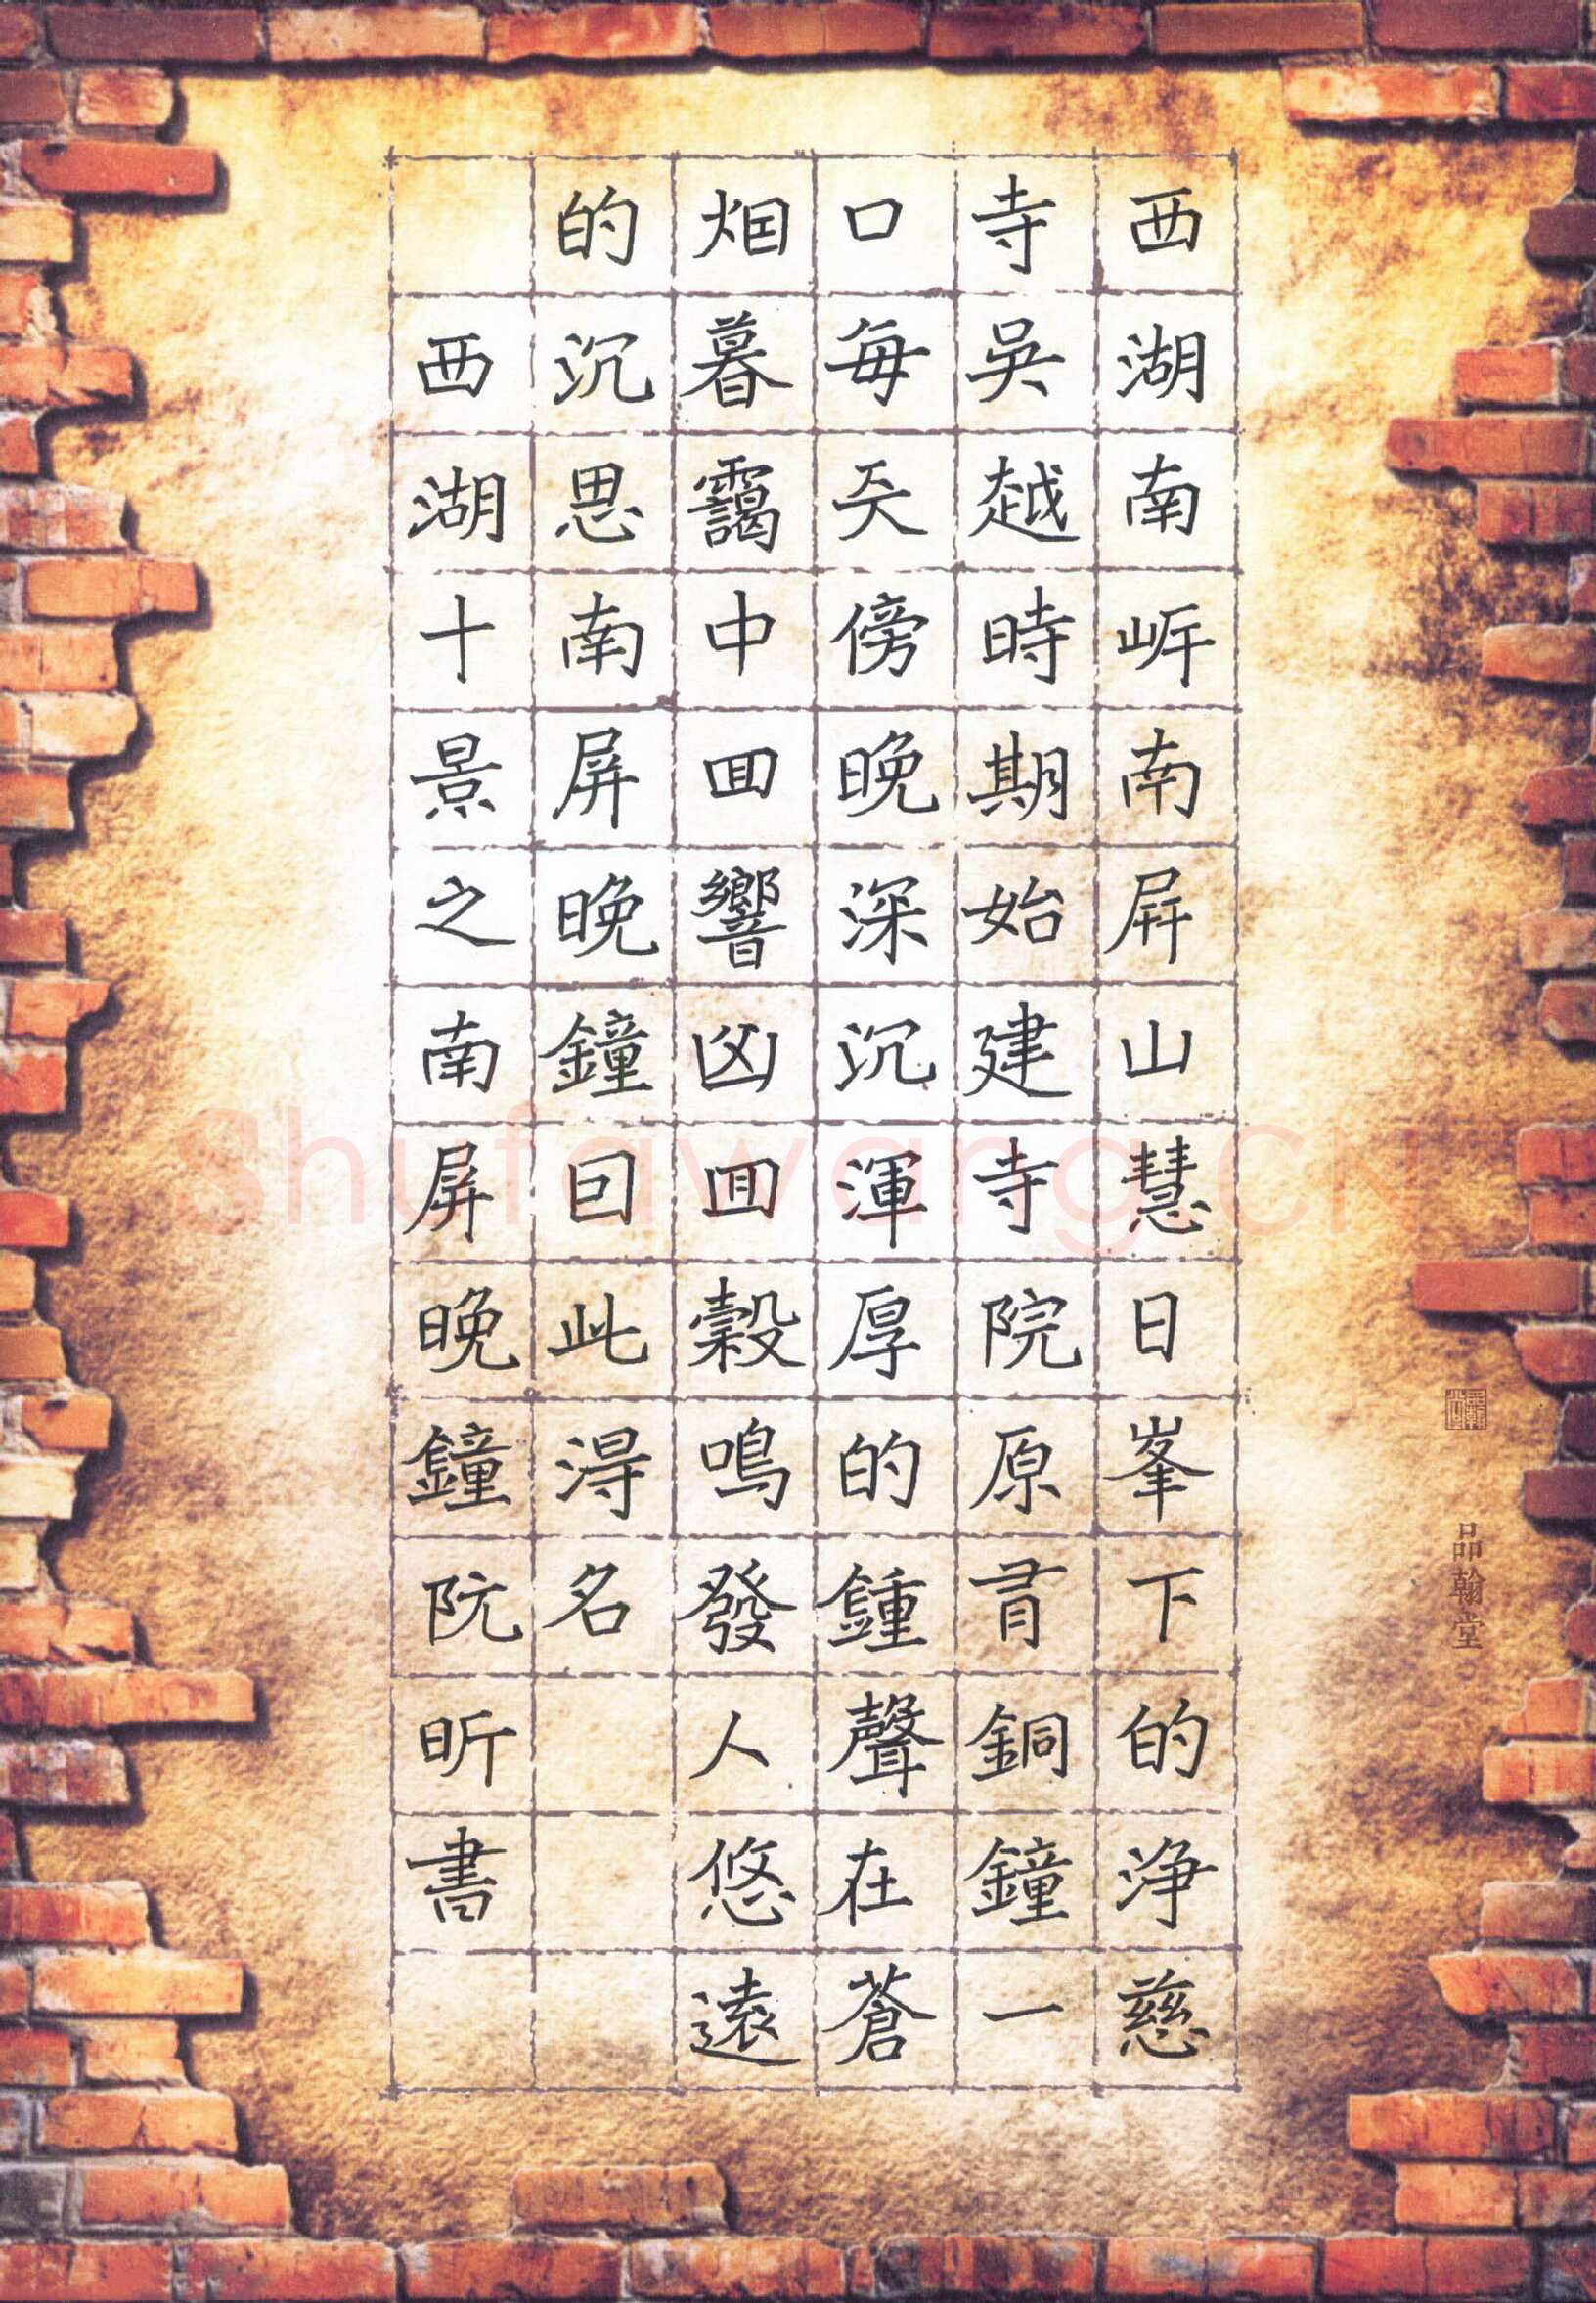 西湖南岸南屏山慧日峯下的淨慈
寺吳越時期始建寺院原有銅鐘一
口每天傍晚深沉渾厚的鍾聲在蒼
烟暮靄中回響凶回轂鳴發人悠遠
的沉思南屏晚鐘因此得名
西湖十景之南屏晚鐘阮昕書
品翰堂
Shufawang.CN